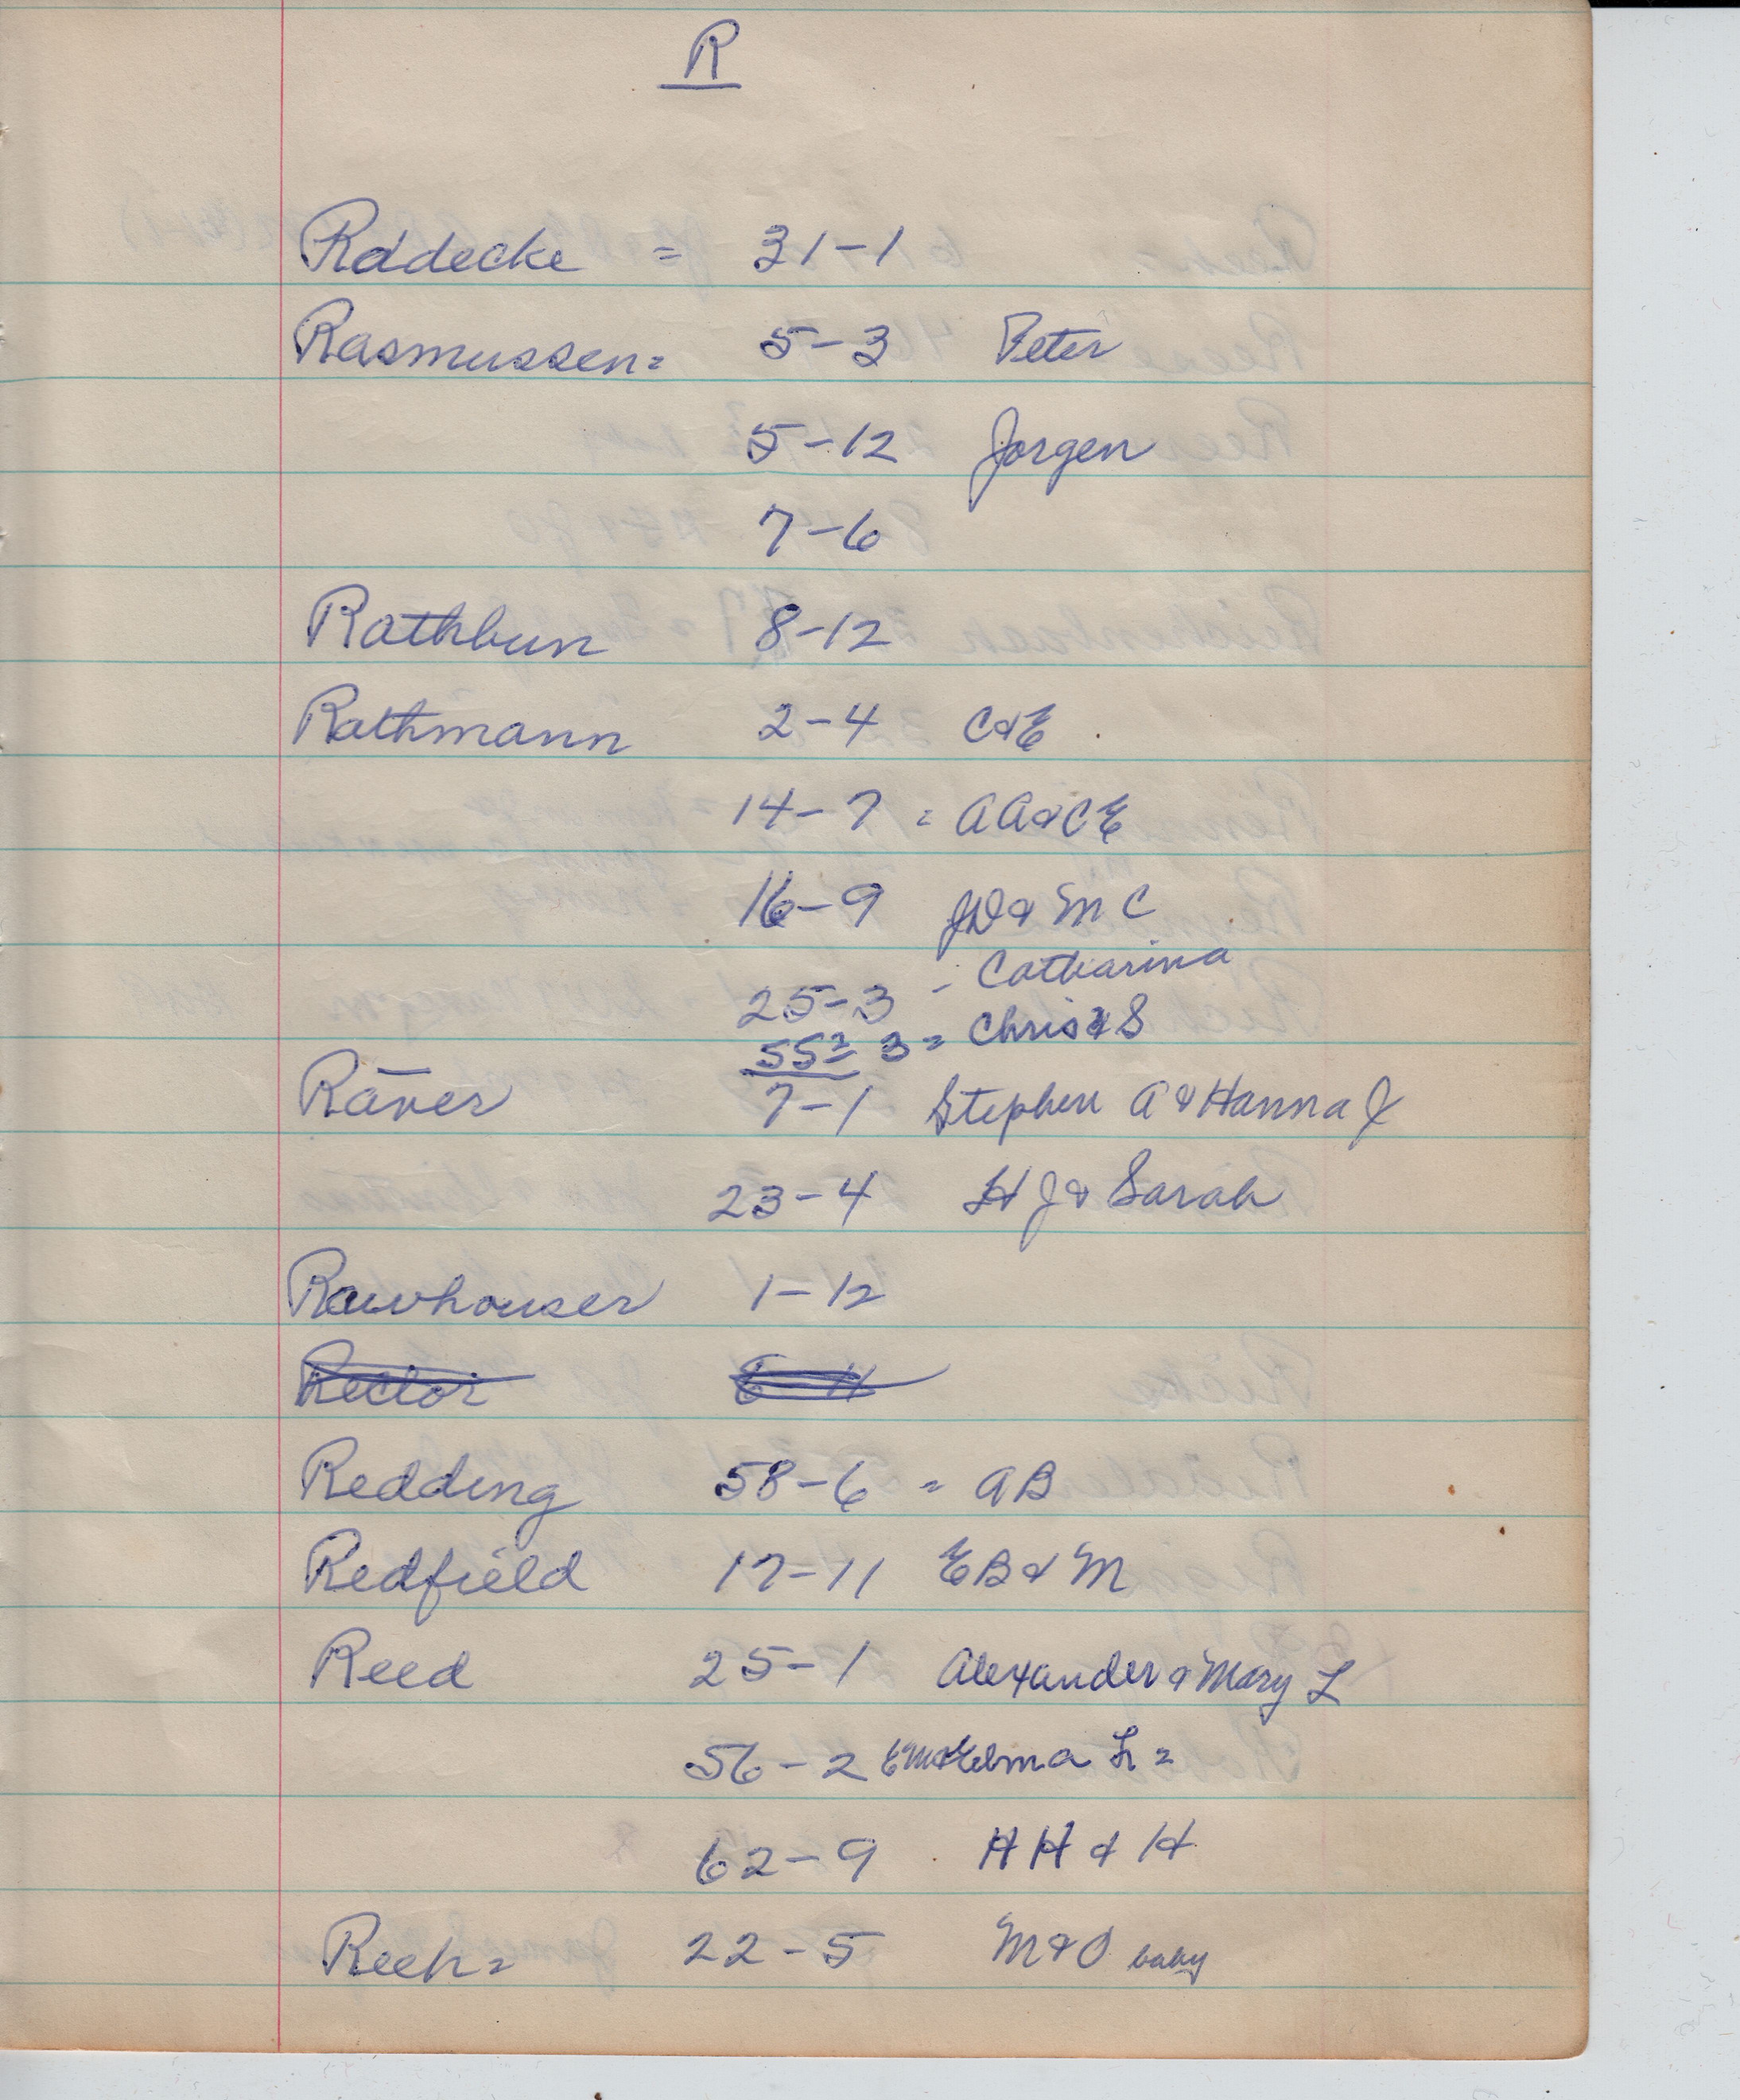 R
Raddecke = 31-1
Rasmussen= 5-3 Peter
5-12 Jorgen
7-6
Rathbun 8-12
Rathmann 2-4 C&E
14-7 = AA&CE
16-9 JD & M C
25-3 - Catharina
55= 3 = Chris & S
Rāver 7-1 Stephen A & Hanna J
23-4 H J & Sarah
Rawhouser 1-12
Rector 6-11
Redding 58-6 = AB
Redfield 17-11 EB & M
Reed 25-1 Alexander & Mary L
56-2 EM&Elma L =
62-9 HH & H
Reeh= 22-5 M&O baby